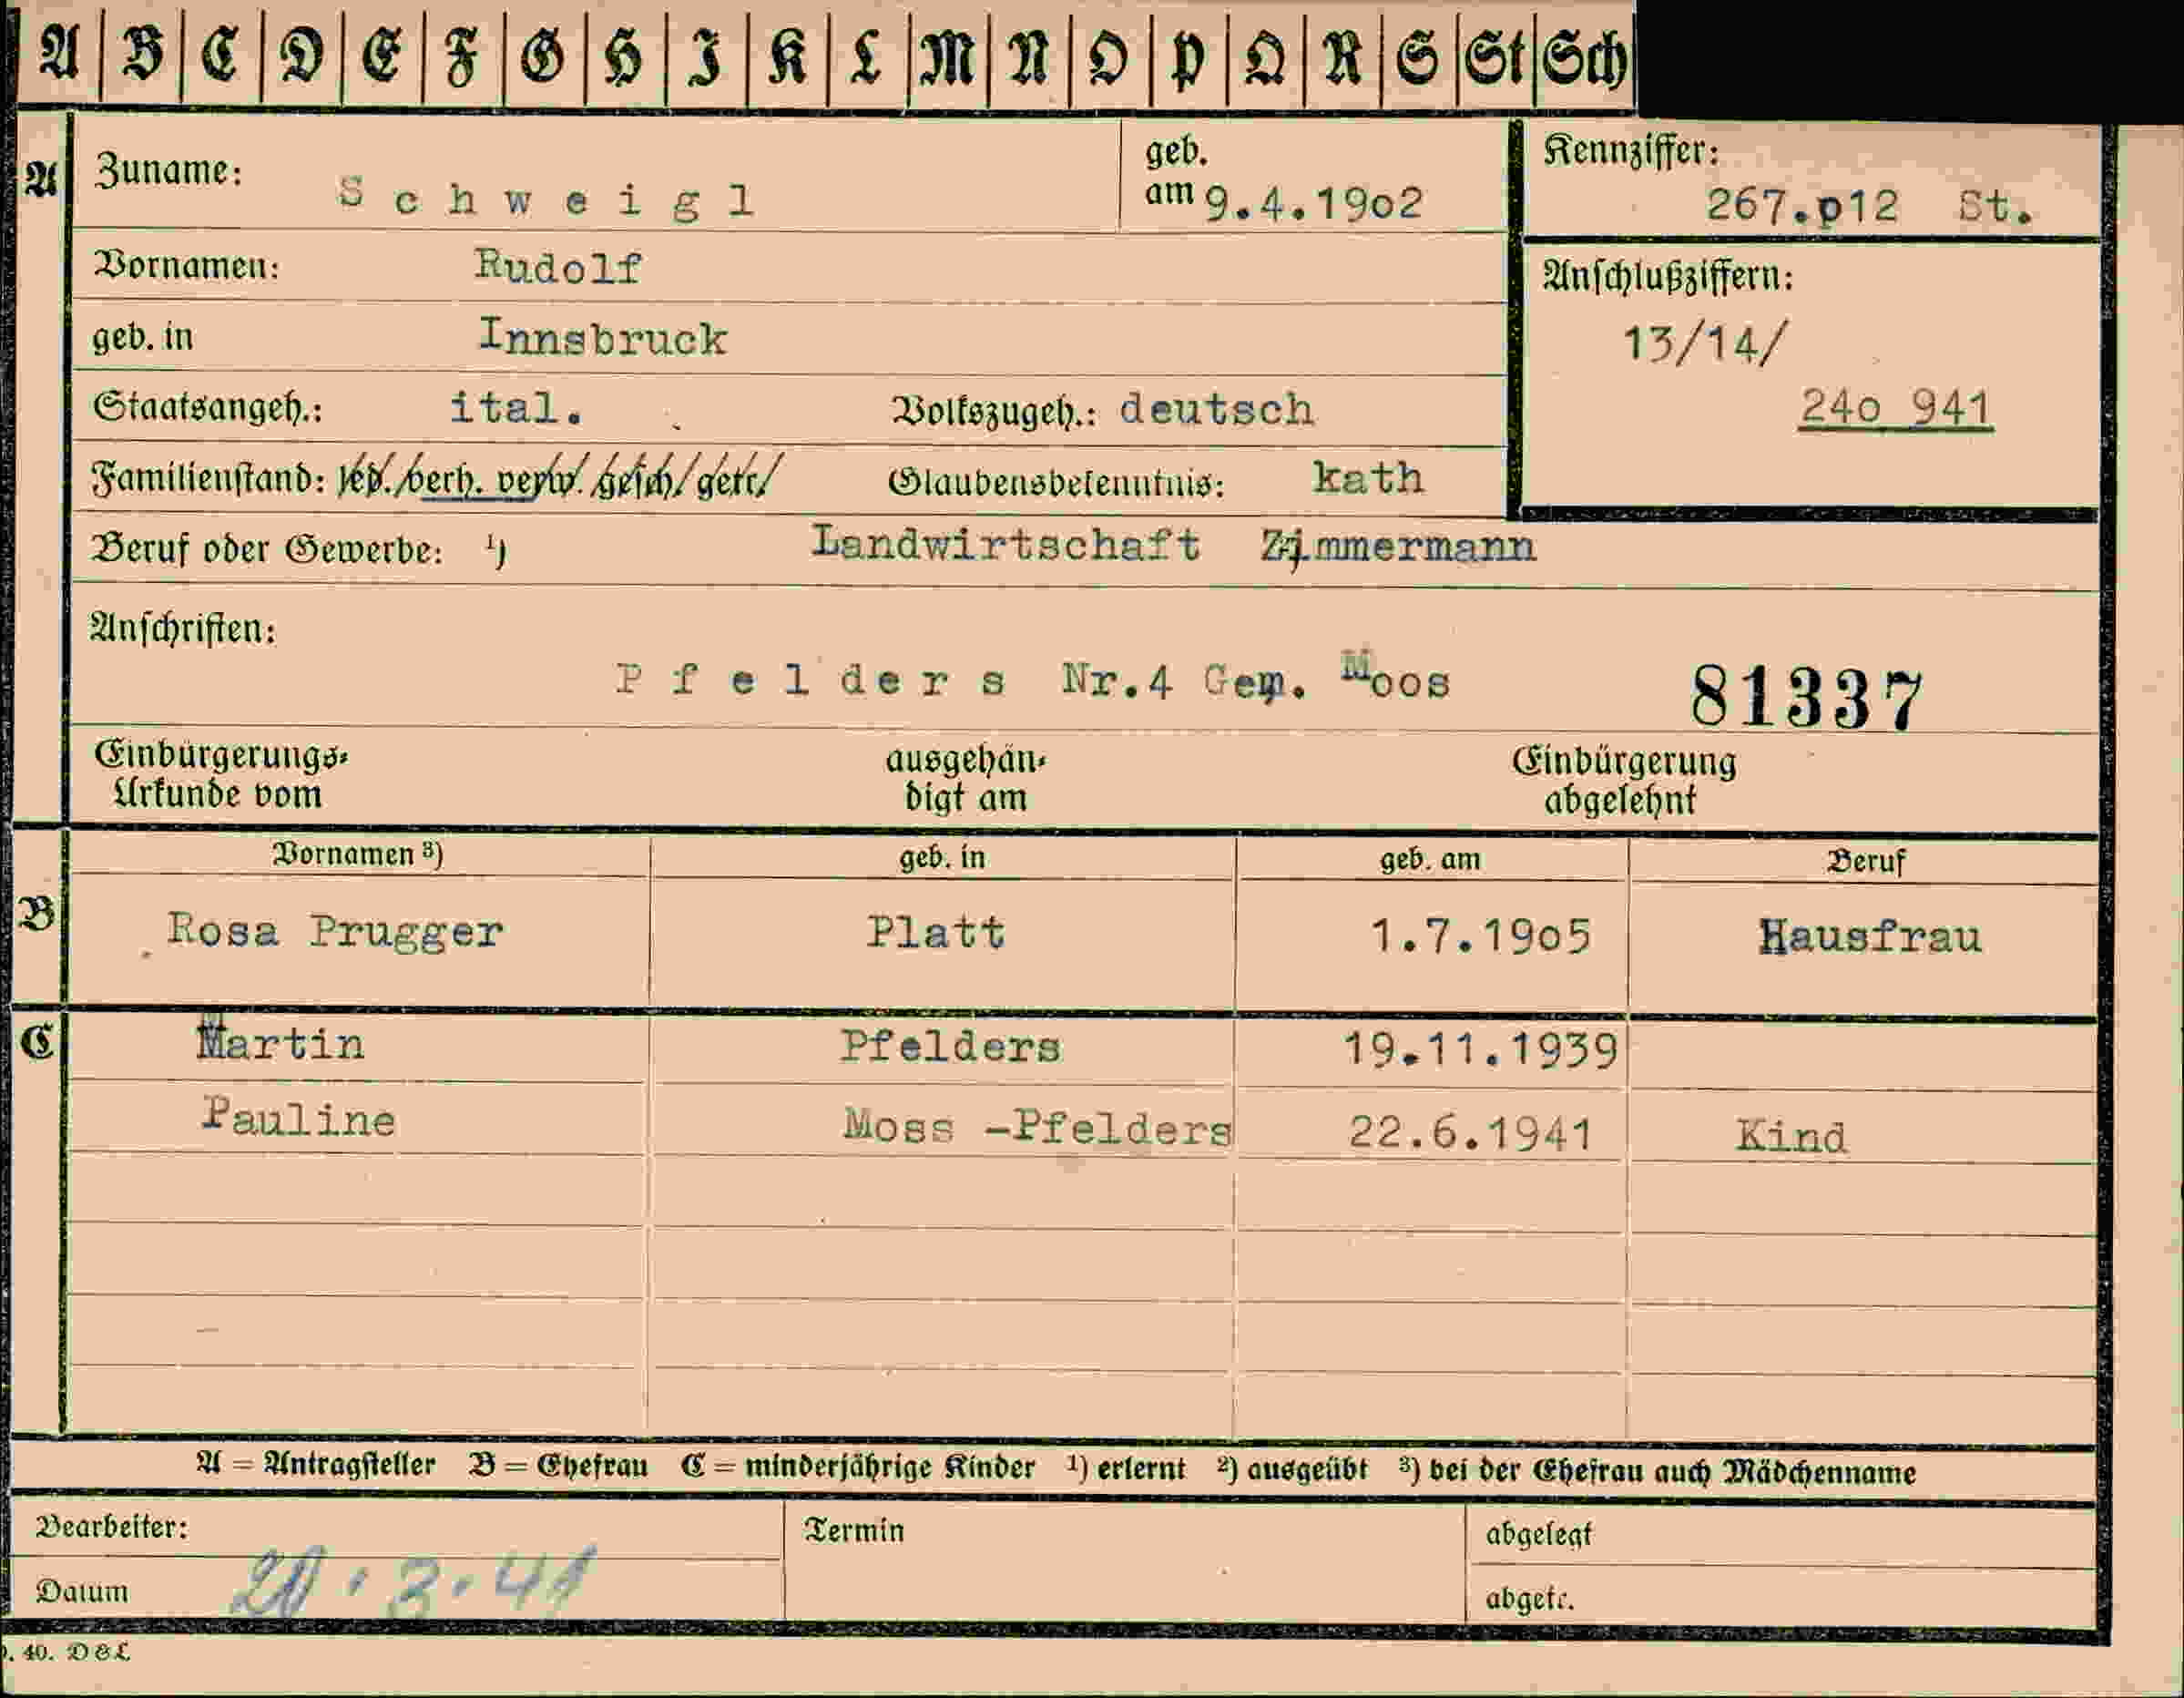 A B C D E F G H I K L M N O P Q R S St Sch
A
Zuname: Schweigl
geb. am 9.4.19o2
Kennziffer: 267.p12 St.
Vornamen: Rudolf
geb. in Innsbruck
Anschlußziffern:
13/14/
24o 941
Staatsangeh.: ital. Volkszugeh.: deutsch
Familienstand: led./verh. verw. gesch./getr/ Glaubensbekenntnis: kath
Beruf oder Gewerbe: ¹) Landwirtschaft Zimmermann
Anschriften:
Pfelders Nr.4 Gem. Moos 81337
Einbürgerungs-
Urkunde vom
ausgehän-
digt am
Einbürgerung
abgelehnt
Vornamen ³) geb. in geb. am Beruf
B Rosa Prugger Platt 1.7.19o5 Hausfrau
C Martin Pfelders 19.11.1939
Pauline Moss -Pfelders 22.6.1941 Kind
A = Antragsteller B = Ehefrau C = minderjährige Kinder ¹) erlernt ²) ausgeübt ³) bei der Ehefrau auch Mädchenname
Bearbeiter: Termin abgelegt
Datum 20.3.41 abgetr.
. 40. D & L